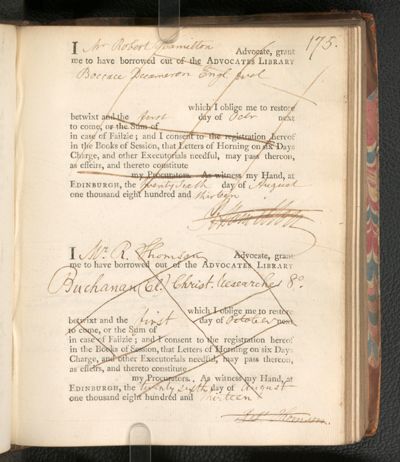 175.
I Mr Robert Hamilton Advocate, grant
me to have borrowed out of the ADVOCATES LIBRARY
Boccace Decameron Engl.
which I oblige me to restore
betwixt and the first day of Octr next
to come, or the Sum of
in case of Failzie; and I consent to the registration hereof
in the Books of Session, that Letters of Horning on six Days
Charge, and other Executorials needful, may pass thereon,
as effeirs, and thereto constitute
my Procurators. As witness my Hand, at
EDINBURGH, the twenty sixth day of August
one thousand eight hundred and thirteen
I Mr. R. Thomson Advocate, grant
me to have borrowed out of the ADVOCATES LIBRARY
Buchanan (Cl.) Christ. Researches 8o.
which I oblige me to restore
betwixt and the first day of October next
to come, or the Sum of
in case of Failzie; and I consent to the registration hereof
in the Books of Session, that Letters of Horning on six Days
Charge, and other Executorials needful, may pass thereon,
as effeirs, and thereto constitute
my Procurators. As witness my Hand, at
EDINBURGH, the twenty sixth day of August
one thousand eight hundred and thirteen
Thomson